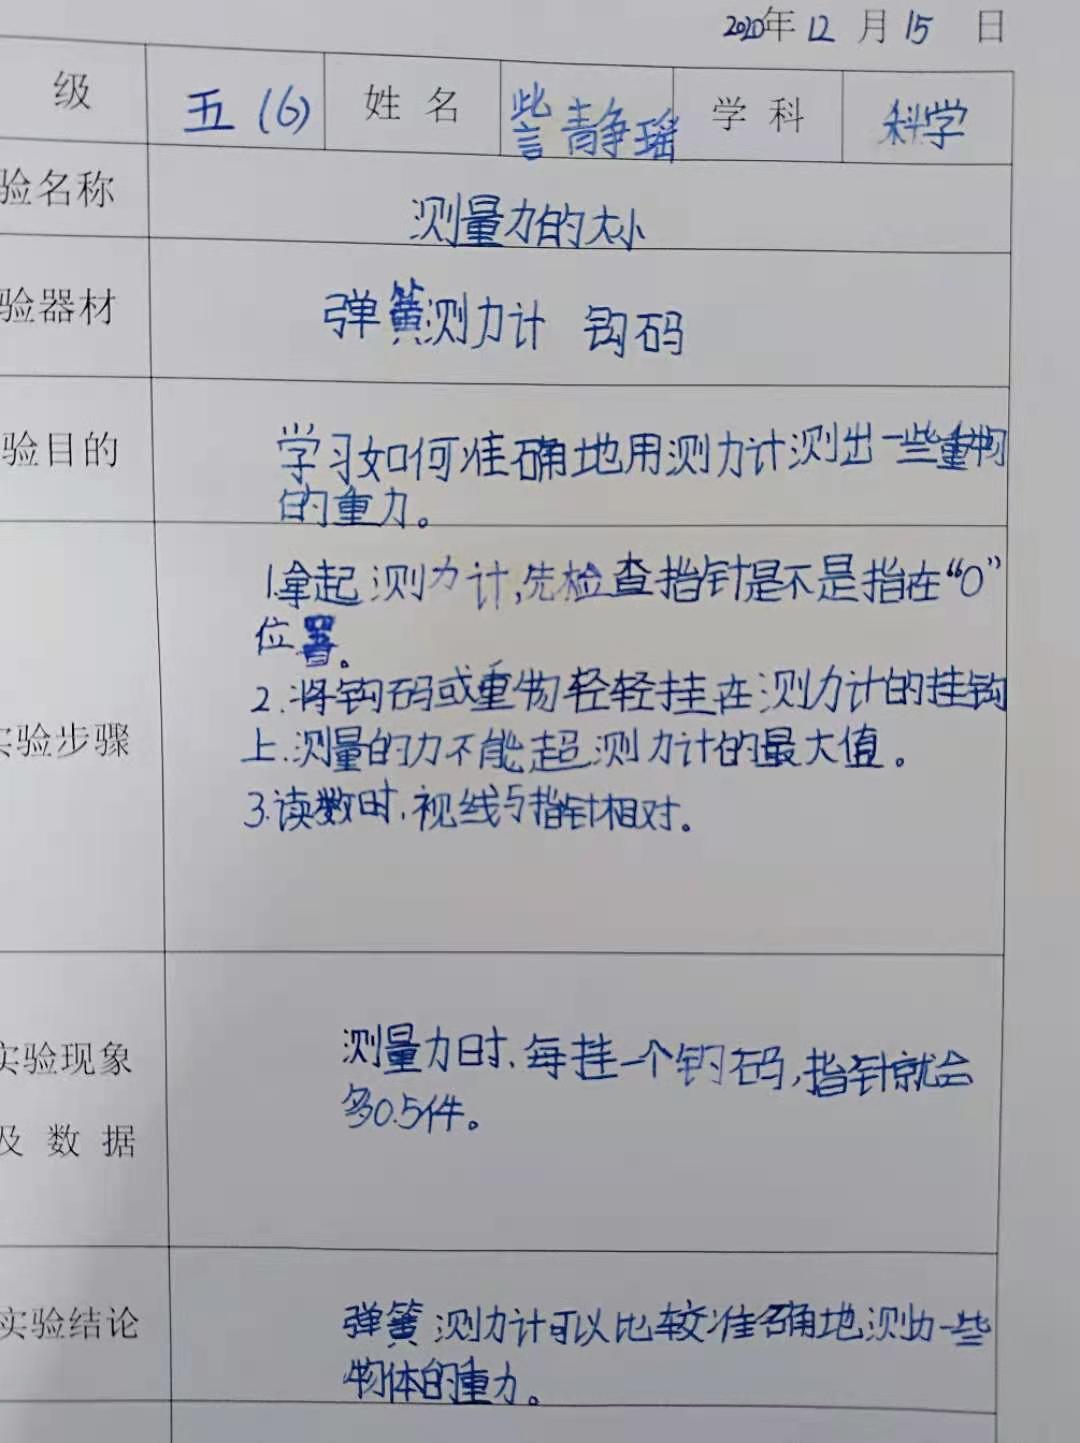 2020年12月15日
级 五(6) 姓名 訾静瑶 学科 科学
验名称 测量力的大小
验器材 弹簧测力计 钩码
验目的 学习如何准确地用测力计测出一些重物
的重力。
1.拿起测力计,先检查指针是不是指在“0”
位置。
实验步骤 2.将钩码或重物轻轻挂在测力计的挂钩
上.测量的力不能超测力计的最大值。
3.读数时,视线与指针相对。
实验现象 测量力时,每挂一个钩码,指针就会
及数据 多0.5件。
实验结论 弹簧测力计可以比较准确地测力一些
物体的重力。